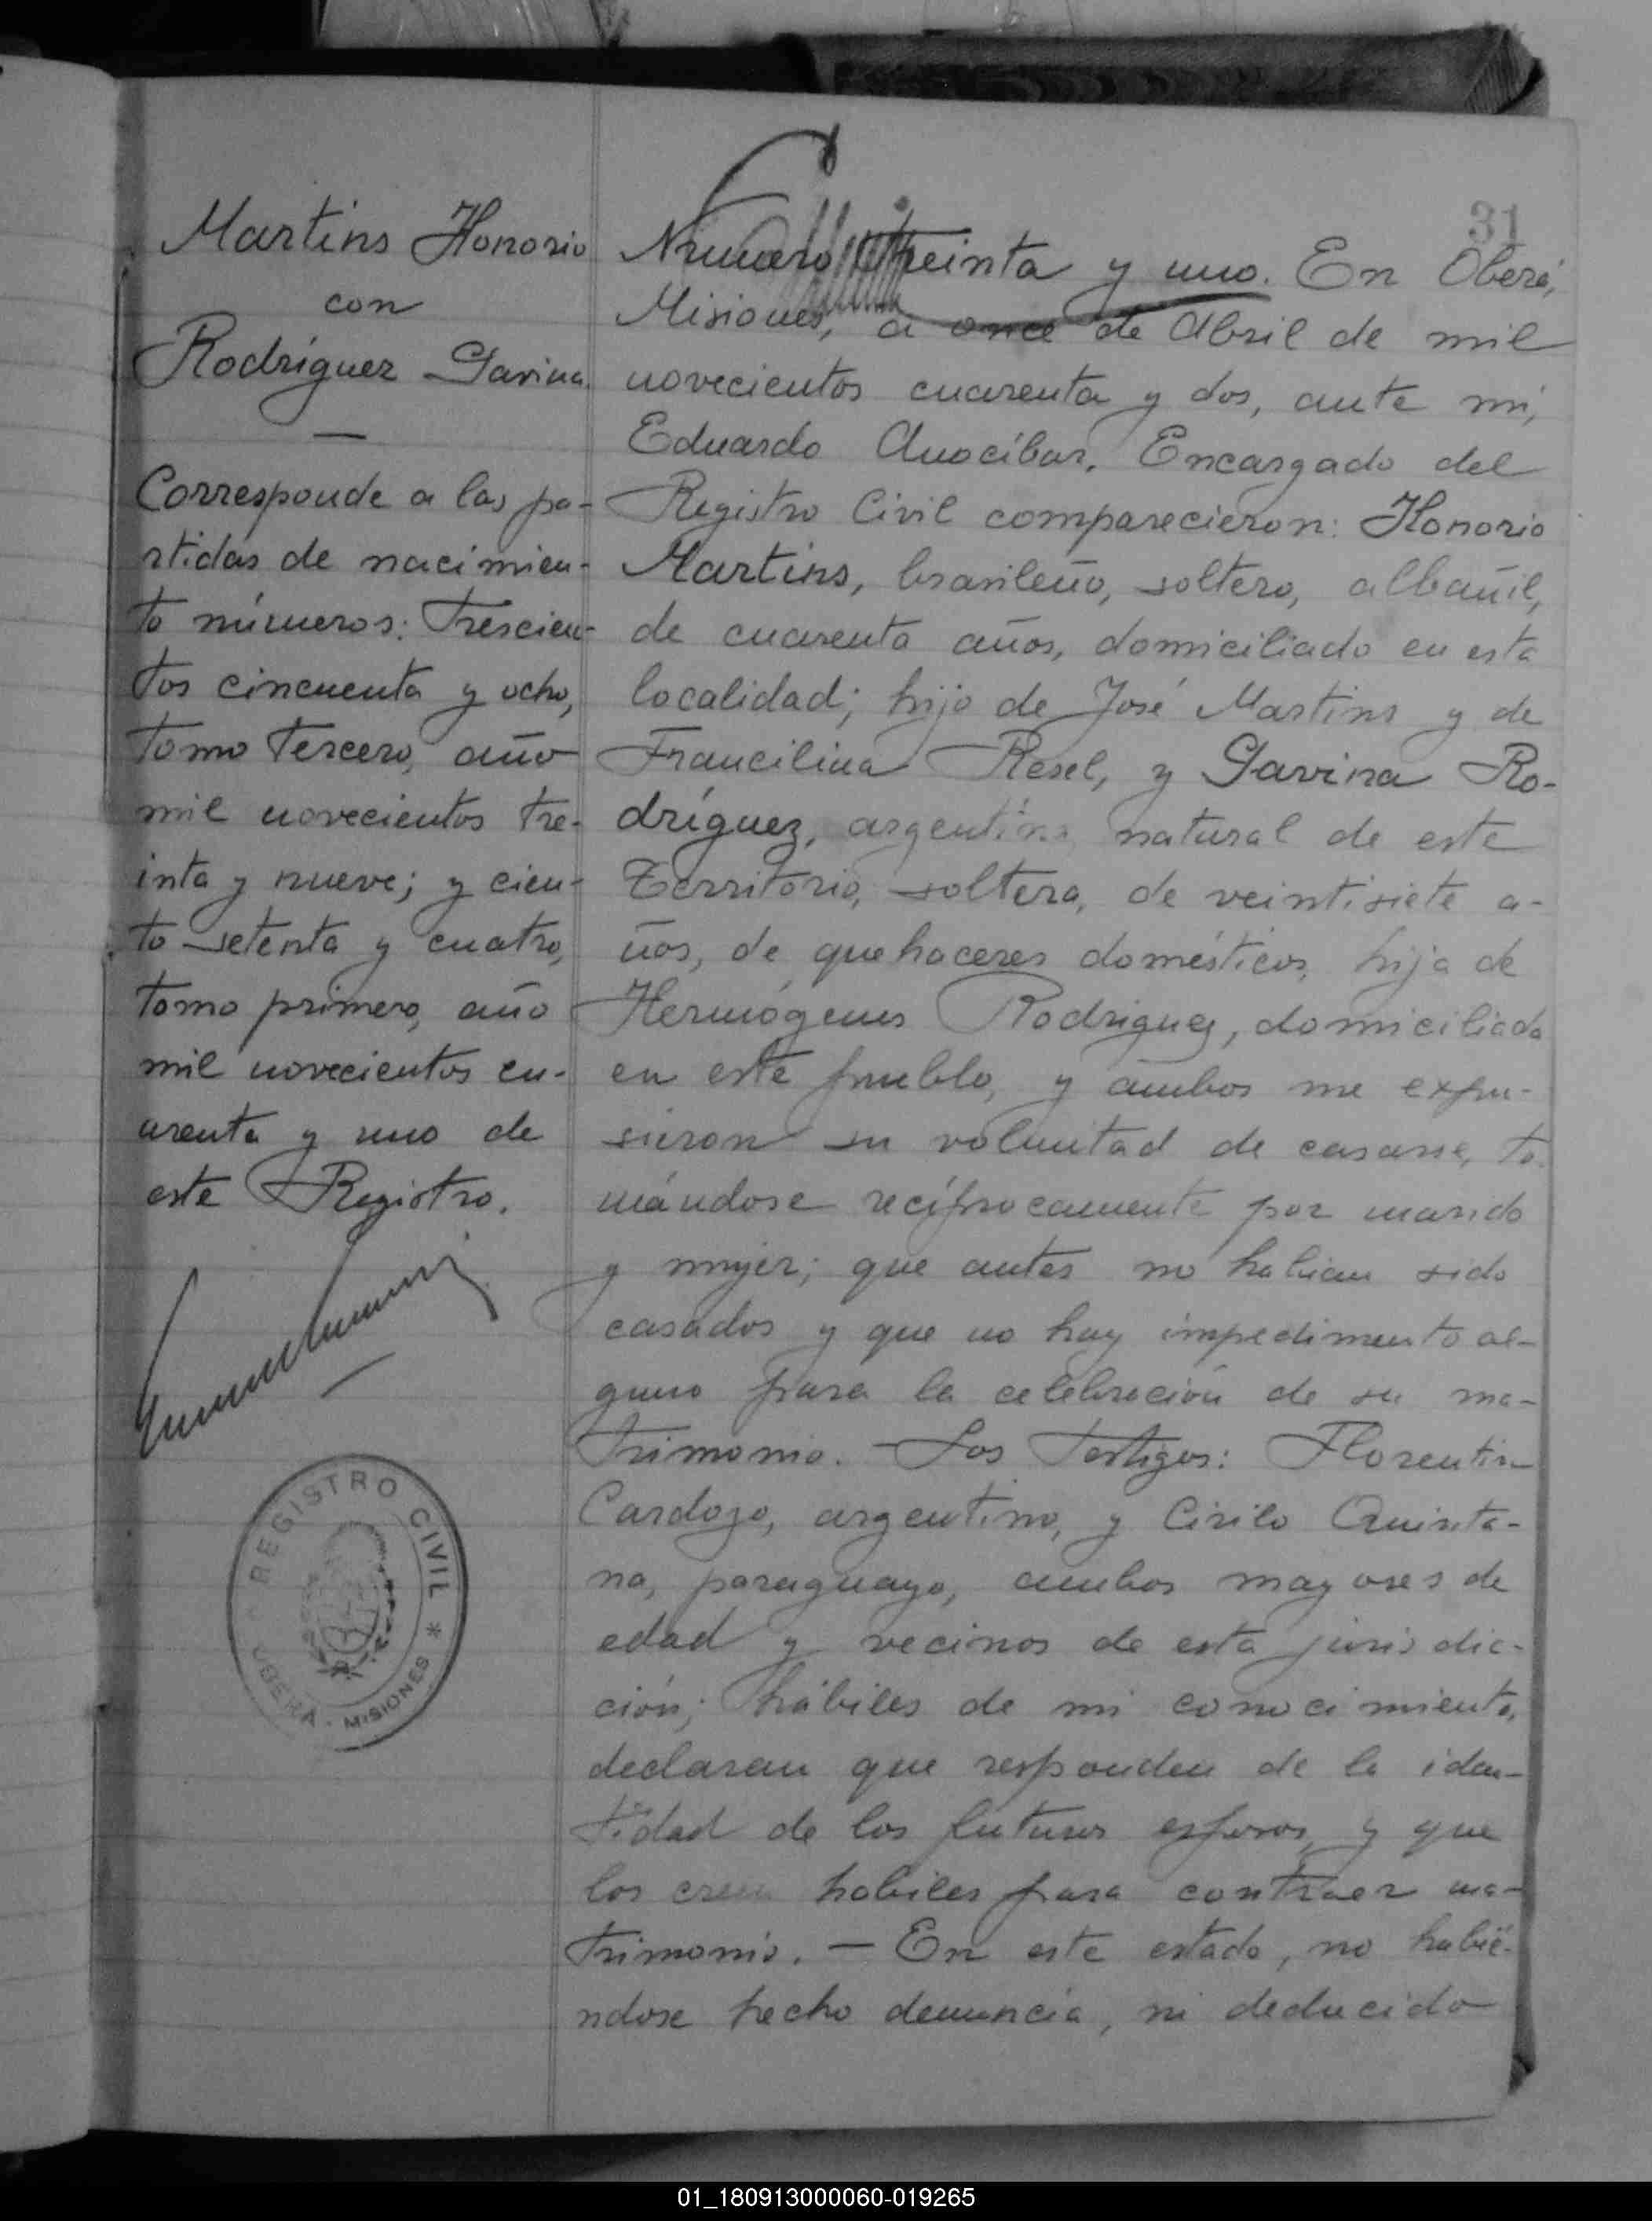 31
Martins Honorio
con
Rodríguez Gavina.
Corresponde a las pa-
rtidas de nacimien-
to números: Trescien-
tos cincuenta y ocho,
tomo tercero, año
mil novecientos tre-
inta y nueve; y cien-
to setenta y cuatro,
tomo primero, año
mil novecientos cu-
arenta y uno de
este Registro.
REGISTRO CIVIL * OBERÁ - MISIONES
Número treinta y uno. En Oberá,
Misiones, a once de Abril de mil
novecientos cuarenta y dos, ante mí,
Eduardo Anocíbar, Encargado del
Registro Civil comparecieron: Honorio
Martins, brasileño, soltero, albañil,
de cuarenta años, domiciliado en esta
localidad; hijo de José Martins y de
Francilina Resel, y Gavina Ro-
dríguez, argentina natural de este
Territorio, soltera, de veintisiete a-
ños, de quehaceres domésticos, hija de
Hermógenes Rodriguez, domiciliada
en este pueblo, y ambos me expu-
sieron su voluntad de casarse, to-
mándose recíprocamente por marido
y mujer; que antes no habian sido
casados y que no hay impedimento al-
guno para la celebración de su ma-
trimonio. - Los Testigos: Florentin
Cardozo, argentino, y Cirilo Quinta-
na, paraguayo, ambos mayores de
edad y vecinos de esta jurisdic-
ción; hábiles de mi conocimiento,
declaran que responden de la iden-
tidad de los futuros esposos, y que
los creen habiles para contraer ma-
trimonio. - En este estado, no habié-
ndose hecho denuncia, ni deducido
01_180913000060-019265